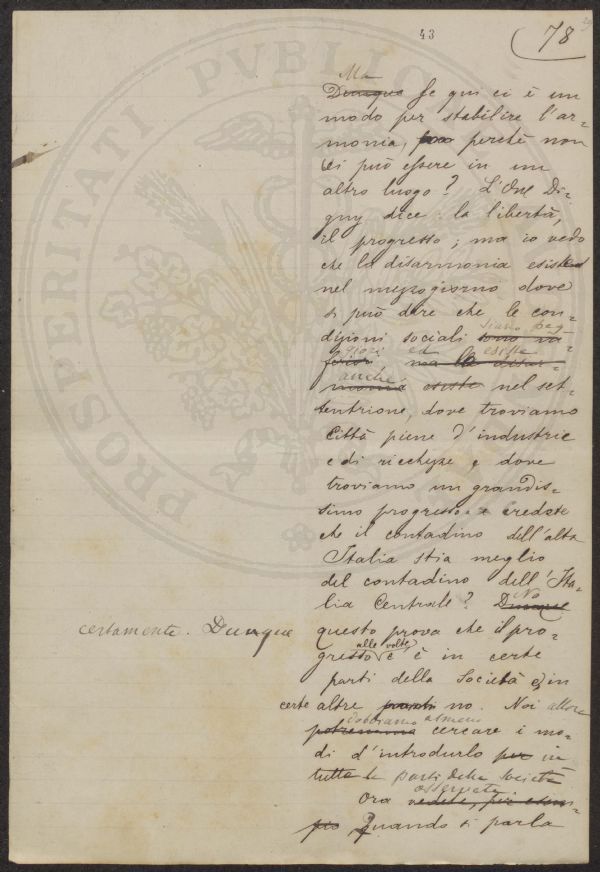 43
78
Ma
Dunque Se qui ci è un
modo per stabilire l'ar=
monia, perchè non
ci può essere in un
altro luogo? L'One Di=
guy dice: la libertà,
il progresso; ma io vedo
che la disarmonia esiste
nel mezzogiorno dove
si può dire che le con=
dizioni sociali siano peg=
giori ed esiste
anche esiste nel set=
tentrione, dove troviamo
Città piene d'industrie
e di ricchezze e dove
troviamo un grandis=
simo progresso. e credete
che il contadino dell'alta
Italia stia meglio
del contadino dell'Ita=
lia Centrale? No
certamente. Dunque questo prova che il pro=
gresso alle volte è in certe
parti della Società e in
certe altre no. Noi allora
dobbiamo almeno cercare i mo=
di d'introdurlo in
tutte le parti della Società
Ora osservate
Quando si parla
PROSPERITATI PVBLICAE